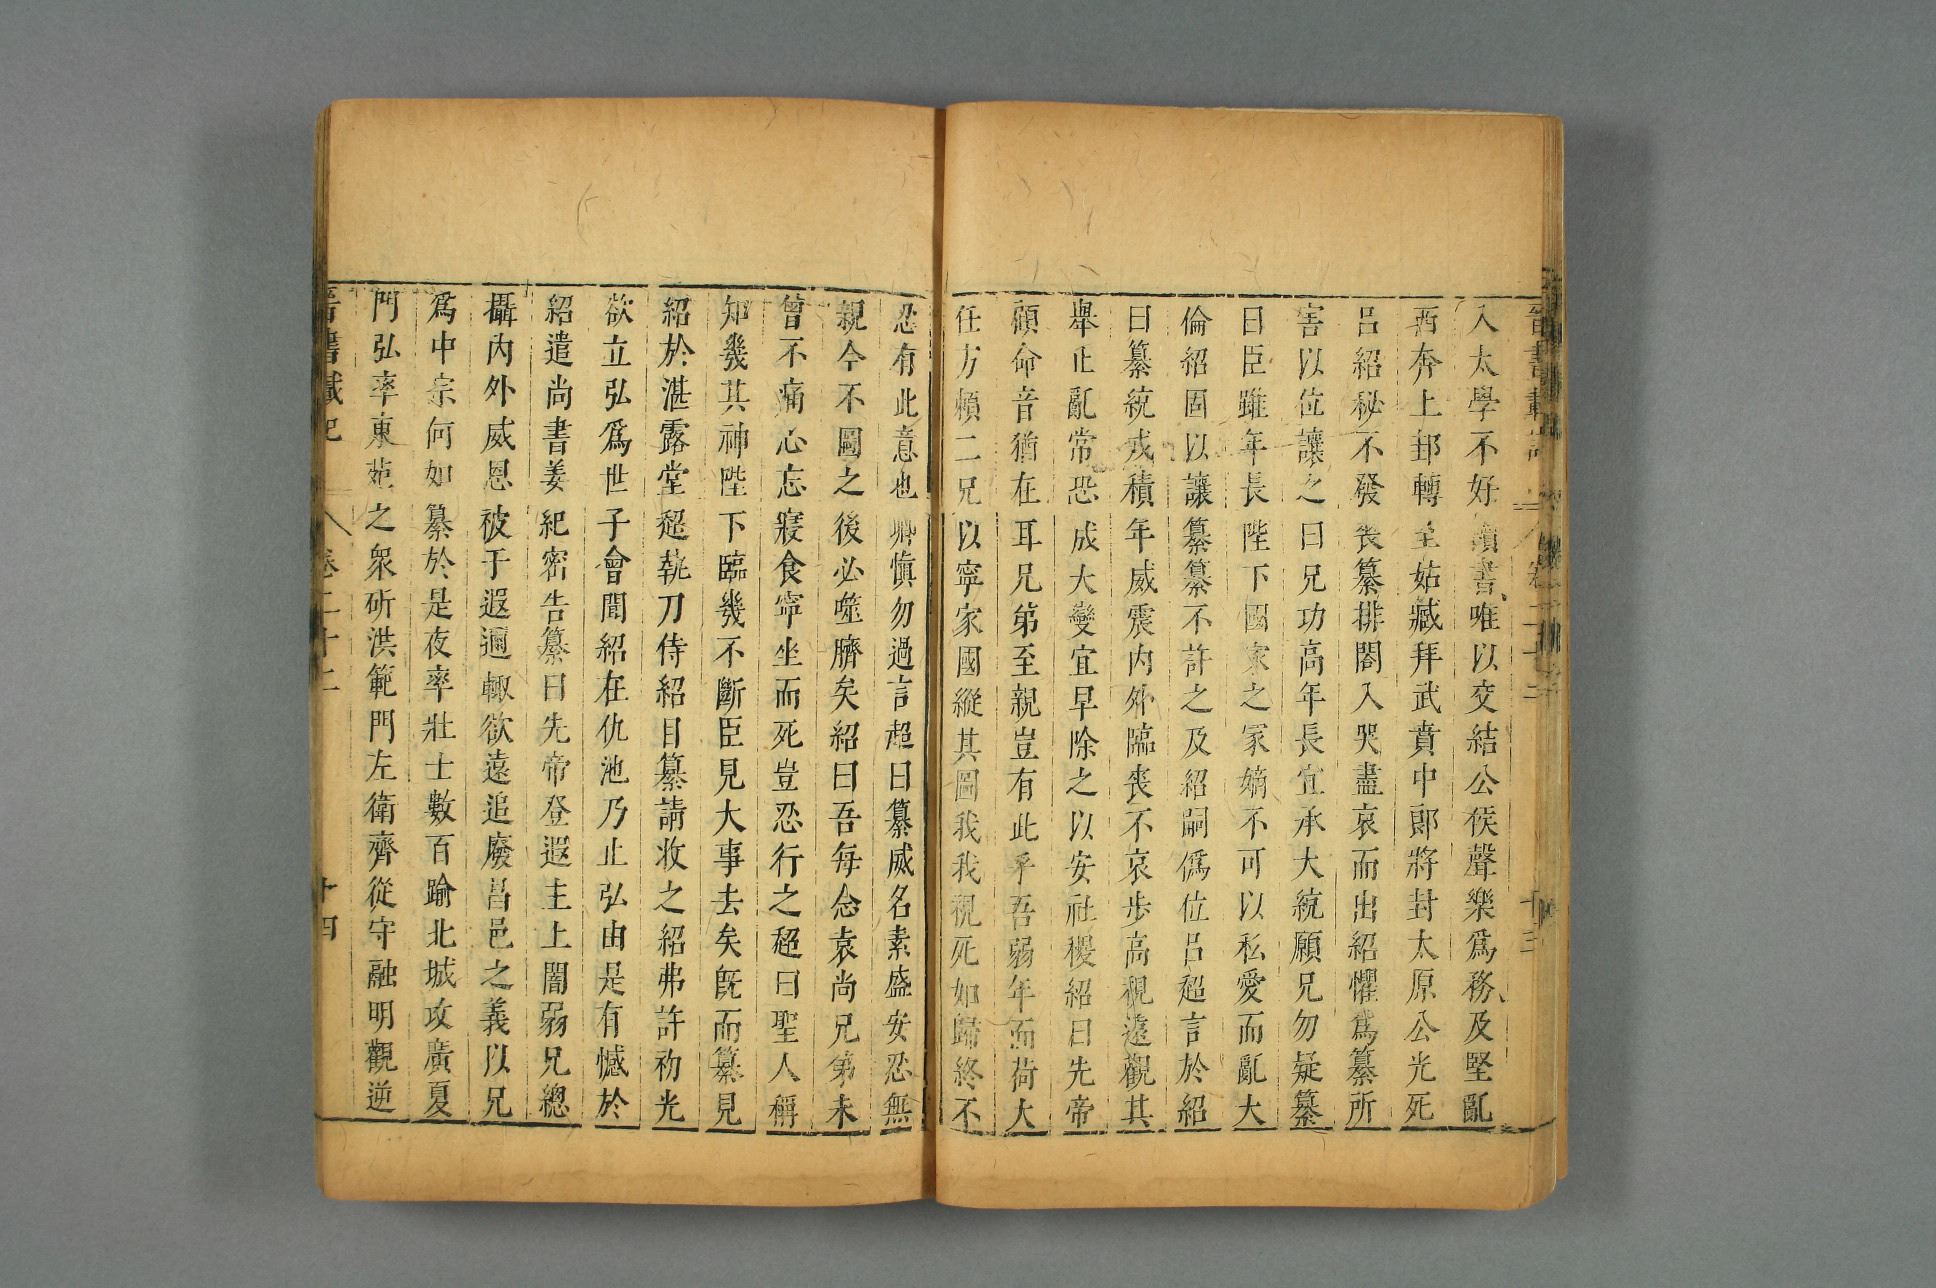 晉書載記 卷二十二 十三
入太學不好讀書唯以交結公侯聲樂爲務及堅亂
西奔上邽轉至姑臧拜武賁中郎將封太原公光死
呂紹秘不發喪纂排閤入哭盡哀而出紹懼爲纂所
害以位讓之曰兄功高年長宜承大統願兄勿疑纂
曰臣雖年長陛下國家之冡嫡不可以私愛而亂大
倫紹固以讓纂纂不許之及紹嗣僞位呂超言於紹
曰纂統戎積年威震內外臨喪不哀步高視遠觀其
舉止亂常恐成大變宜早除之以安社稷紹曰先帝
顧命音猶在耳兄弟至親豈有此乎吾弱年而荷大
任方賴二兄以寧家國縱其圖我我視死如歸終不
忍有此意也卿慎勿過言超曰纂威名素盛安忍無
親今不圖之後必噬臍矣紹曰吾每念袁尚兄弟未
曾不痛心忘寢食寧坐而死豈忍行之超曰聖人稱
知幾其神陛下臨幾不斷臣見大事去矣旣而纂見
紹於湛露堂超執刀侍紹目纂請收之紹弗許初光
欲立弘爲世子會聞紹在仇池乃止弘由是有憾於
紹遣尚書姜紀密告纂曰先帝登遐主上闇弱兄總
攝內外威恩被于遐邇輒欲遠追廢昌邑之義以兄
爲中宗何如纂於是夜率壯士數百踰北城攻廣夏
門弘率東苑之衆斫洪範門左衛齊從守融明觀逆
晉書載記 卷二十二 十四